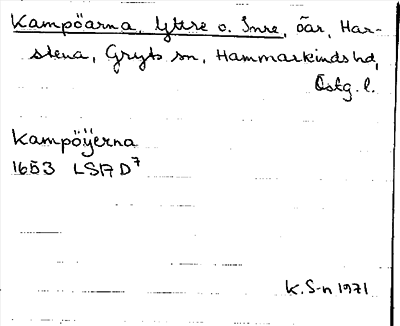 Kampöarna, Yttre o. Inre, öar, Har-
stena, Gryts sn, Hammarkinds hd,
Östg. l.
Kampöÿerna
1653 LSA D7
K. S-n 1971